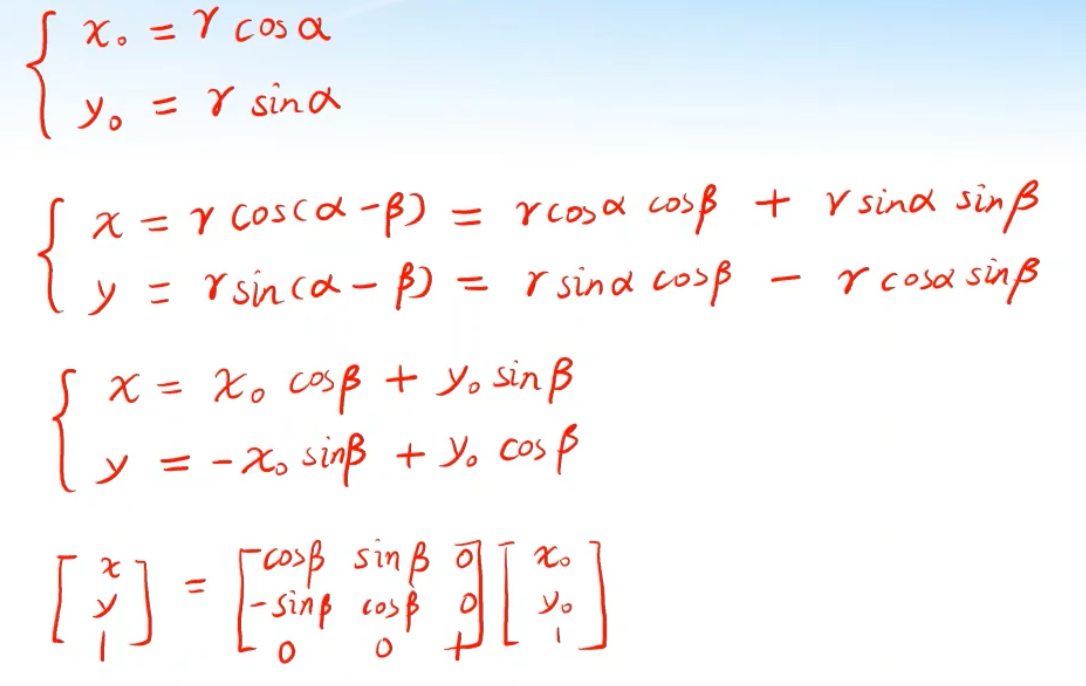 { x₀ = r cosα
y₀ = r sinα
{ x = r cos(α-β) = r cosα cosβ + r sinα sinβ
y = r sin(α-β) = r sinα cosβ - r cosα sinβ
{ x = x₀ cosβ + y₀ sinβ
y = -x₀ sinβ + y₀ cosβ
[x y 1] = [cosβ sinβ 0 -sinβ cosβ 0 0 0 1] [x₀ y₀ 1]